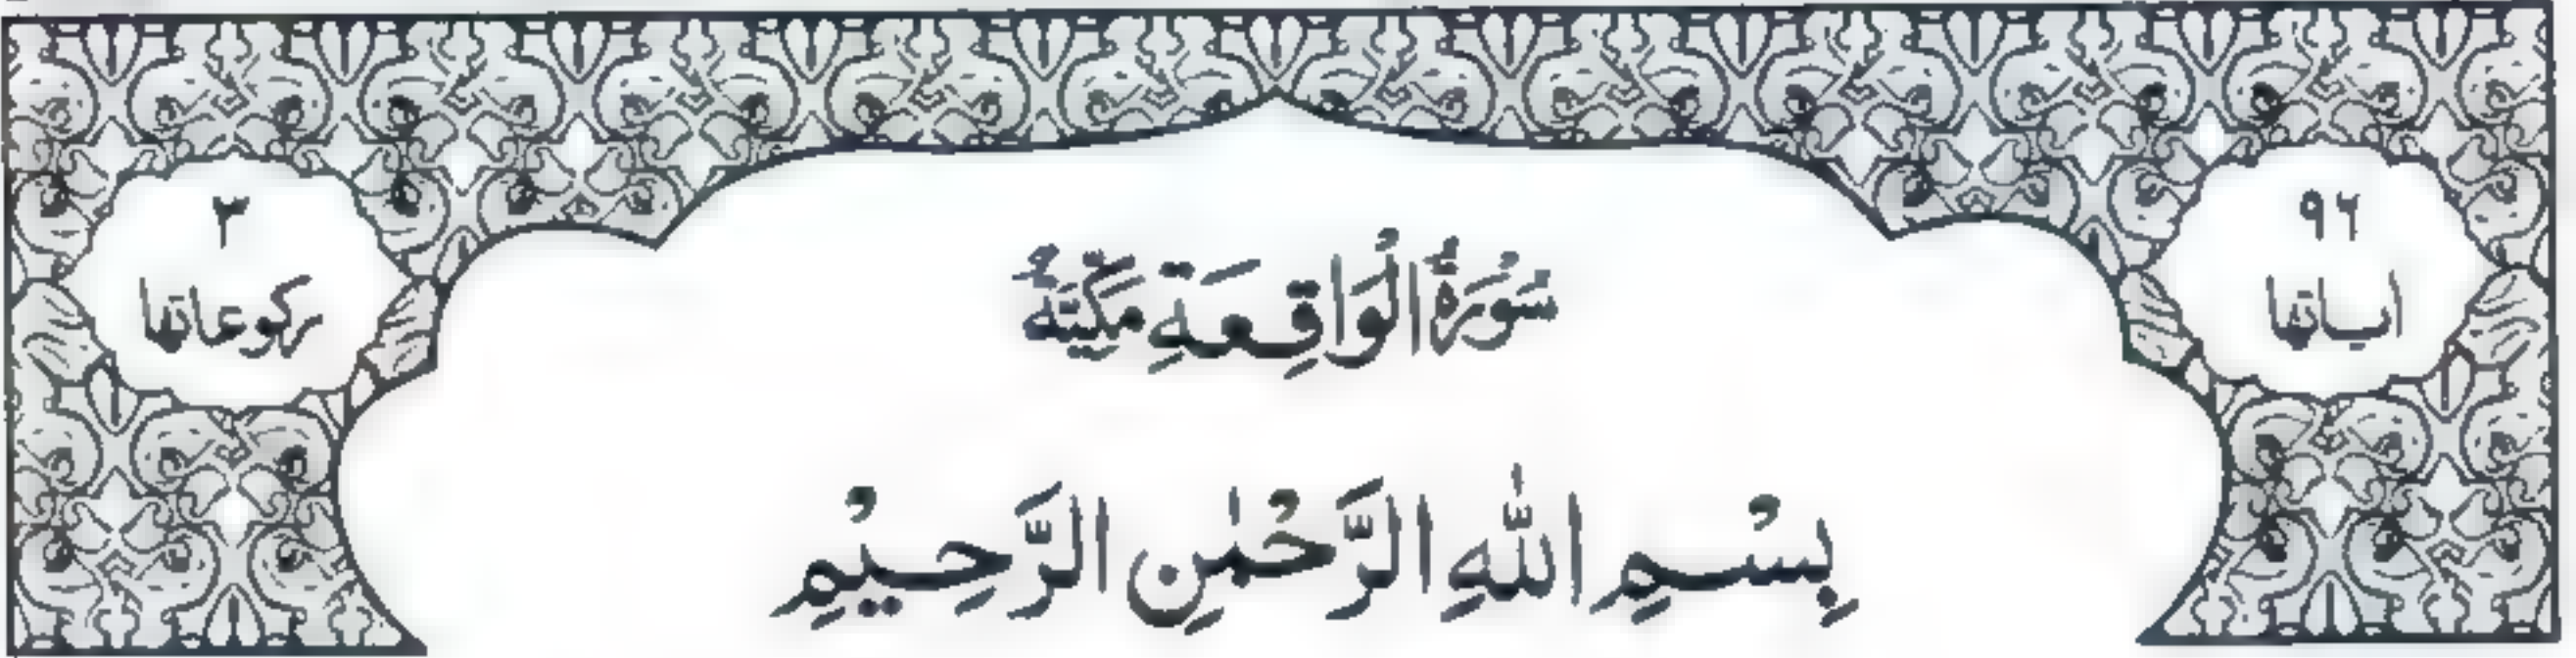 ٩٦
اٰیاتها
سُوْرَةُ الْوَاقِعَةِ مَكِّیَّةٌ
٣
ركوعاتها
بِسْمِ اللّٰهِ الرَّحْمٰنِ الرَّحِیْمِ